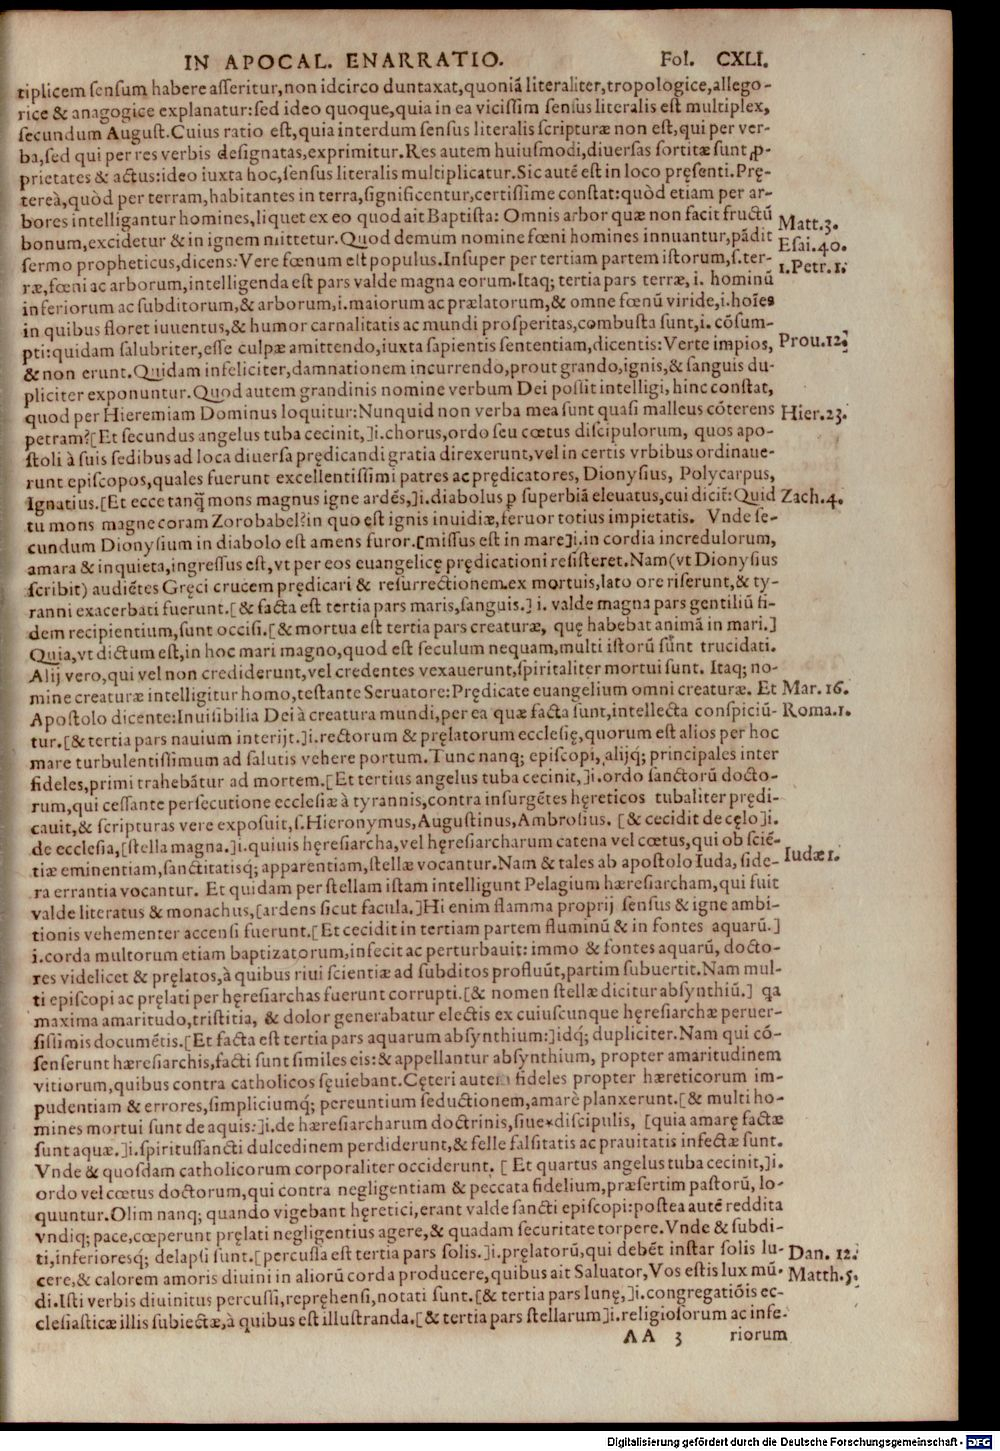 IN APOCAL. ENARRATIO. Fol. CXLI.
tiplicem sensum habere asseritur,non idcirco duntaxat,quoniã literaliter,tropologice,allego-
rice & anagogice explanatur:sed ideo quoque,quia in ea vicissim sensus literalis est multiplex,
secundum August.Cuius ratio est,quia interdum sensus literalis scripturæ non est,qui per ver-
ba,sed qui per res verbis designatas,exprimitur.Res autem huiusmodi,diuersas sortitæ sunt ꝓ-
prietates & actus:ideo iuxta hoc,sensus literalis multiplicatur.Sic autẽ est in loco pręsenti.Prę-
tereà,quòd per terram,habitantes in terra,significentur,certissime constat:quòd etiam per ar-
bores intelligantur homines,liquet ex eo quod ait Baptista: Omnis arbor quæ non facit fructũ
Matt.3.
bonum,excidetur & in ignem mittetur.Quod demum nomine fœni homines innuantur,pãdit
Esai.40.
sermo propheticus,dicens:Vere fœnum est populus.Insuper per tertiam partem istorum,s.ter-
1.Petr.1.
ræ,fœni ac arborum,intelligenda est pars valde magna eorum.Itaq; tertia pars terræ, i. hominũ
inferiorum ac subditorum,& arborum,i.maiorum ac prælatorum,& omne fœnũ viride,i.hoĩes
in quibus floret iuuentus,& humor carnalitatis ac mundi prosperitas,combusta sunt,i. cõsum-
pti:quidam salubriter,esse culpæ amittendo,iuxta sapientis sententiam,dicentis:Verte impios,
Prou.12.
& non erunt.Quidam infeliciter,damnationem incurrendo,prout grando,ignis,& sanguis du-
pliciter exponuntur.Quod autem grandinis nomine verbum Dei possit intelligi,hinc constat,
quod per Hieremiam Dominus loquitur:Nunquid non verba mea sunt quasi malleus cõterens
Hier.23.
petram?[Et secundus angelus tuba cecinit,]i.chorus,ordo seu cœtus discipulorum, quos apo-
stoli à suis sedibus ad loca diuersa prędicandi gratia direxerunt,vel in certis vrbibus ordinaue-
runt episcopos,quales fuerunt excellentissimi patres ac prędicatores, Dionysius, Polycarpus,
Ignatius.[Et ecce tanq̃ mons magnus igne ardẽs,]i.diabolus ꝑ superbiã eleuatus,cui dicit̃:Quid
Zach.4.
tu mons magne coram Zorobabel?in quo est ignis inuidiæ,feruor totius impietatis. Vnde se-
cundum Dionysium in diabolo est amens furor.[missus est in mare]i.in cordia incredulorum,
amara & inquieta,ingressus est,vt per eos euangelicę prędicationi resisteret.Nam(vt Dionysius
scribit) audiẽtes Gręci crucem prędicari & resurrectionem ex mortuis,lato ore riserunt,& ty-
ranni exacerbati fuerunt.[& facta est tertia pars maris,sanguis.] i. valde magna pars gentiliũ fi-
dem recipientium,sunt occisi.[& mortua est tertia pars creaturæ, quę habebat animã in mari.]
Quia,vt dictum est,in hoc mari magno,quod est seculum nequam,multi istorũ sunt trucidati.
Alij vero,qui vel non crediderunt,vel credentes vexauerunt,spiritaliter mortui sunt. Itaq; no-
mine creaturæ intelligitur homo,testante Seruatore:Prędicate euangelium omni creaturæ. Et
Mar.16.
Apostolo dicente:Inuisibilia Dei à creatura mundi,per ea quæ facta sunt,intellecta conspiciũ-
Roma.1.
tur.[& tertia pars nauium interijt.]i.rectorum & pręlatorum ecclesię,quorum est alios per hoc
mare turbulentissimum ad salutis vehere portum.Tunc nanq; episcopi, alijq; principales inter
fideles,primi trahebãtur ad mortem.[Et tertius angelus tuba cecinit,]i.ordo sanctorũ docto-
rum,qui cessante persecutione ecclesiæ à tyrannis,contra insurgẽtes hęreticos tubaliter prędi-
cauit,& scripturas vere exposuit,s.Hieronymus,Augustinus,Ambrosius. [& cecidit de cęlo]i.
de ecclesia,[stella magna.]i.quiuis hęresiarcha,vel hęresiarcharum catena vel cœtus,qui ob sciẽ-
tiæ eminentiam,sanctitatisq; apparentiam,stellæ vocantur.Nam & tales ab apostolo Iuda, side-
Iudæ 1.
ra errantia vocantur. Et quidam per stellam istam intelligunt Pelagium hæresiarcham,qui fuit
valde literatus & monachus,[ardens sicut facula.]Hi enim flamma proprij sensus & igne ambi-
tionis vehementer accensi fuerunt.[Et cecidit in tertiam partem fluminũ & in fontes aquarũ.]
i.corda multorum etiam baptizatorum,infecit ac perturbauit: immo & fontes aquarũ, docto-
res videlicet & pręlatos,à quibus riui scientiæ ad subditos profluũt,partim subuertit.Nam mul-
ti episcopi ac pręlati per hęresiarchas fuerunt corrupti.[& nomen stellæ dicitur absynthiũ.] qa
maxima amaritudo,tristitia, & dolor generabatur electis ex cuiuscunque hęresiarchæ peruer-
sissimis documẽtis.[Et facta est tertia pars aquarum absynthium:]idq; dupliciter.Nam qui cõ-
senserunt hæresiarchis,facti sunt similes eis:& appellantur absynthium, propter amaritudinem
vitiorum,quibus contra catholicos sęuiebant.Cęteri autem fideles propter hæreticorum im-
pudentiam & errores,simpliciumq; pereuntium seductionem,amarè planxerunt.[& multi ho-
mines mortui sunt de aquis:]i.de hæresiarcharum doctrinis,siue discipulis, [quia amarę factæ
sunt aquæ.]i.spiritussancti dulcedinem perdiderunt,& felle falsitatis ac prauitatis infectæ sunt.
Vnde & quosdam catholicorum corporaliter occiderunt. [ Et quartus angelus tuba cecinit,]i.
ordo vel cœtus doctorum,qui contra negligentiam & peccata fidelium,præsertim pastorũ, lo-
quuntur.Olim nanq; quando vigebant hęretici,erant valde sancti episcopi:postea autẽ reddita
vndiq; pace,cœperunt pręlati negligentius agere,& quadam securitate torpere.Vnde & subdi-
ti,inferioresq; delapsi sunt.[percussa est tertia pars solis.]i.pręlatorũ,qui debẽt instar solis lu-
Dan. 12.
cere,& calorem amoris diuini in aliorũ corda producere,quibus ait Saluator,Vos estis lux mũ-
Matth.5.
di.Isti verbis diuinitus percussi,repręhensi,notati sunt.[& tertia pars lunę,]i.congregatiõis ec-
clesiasticæ illis subiectæ,à quibus est illustranda.[& tertia pars stellarum]i.religiosorum ac infe-
AA 3 riorum
Digitalisierung gefördert durch die Deutsche Forschungsgemeinschaft - DFG